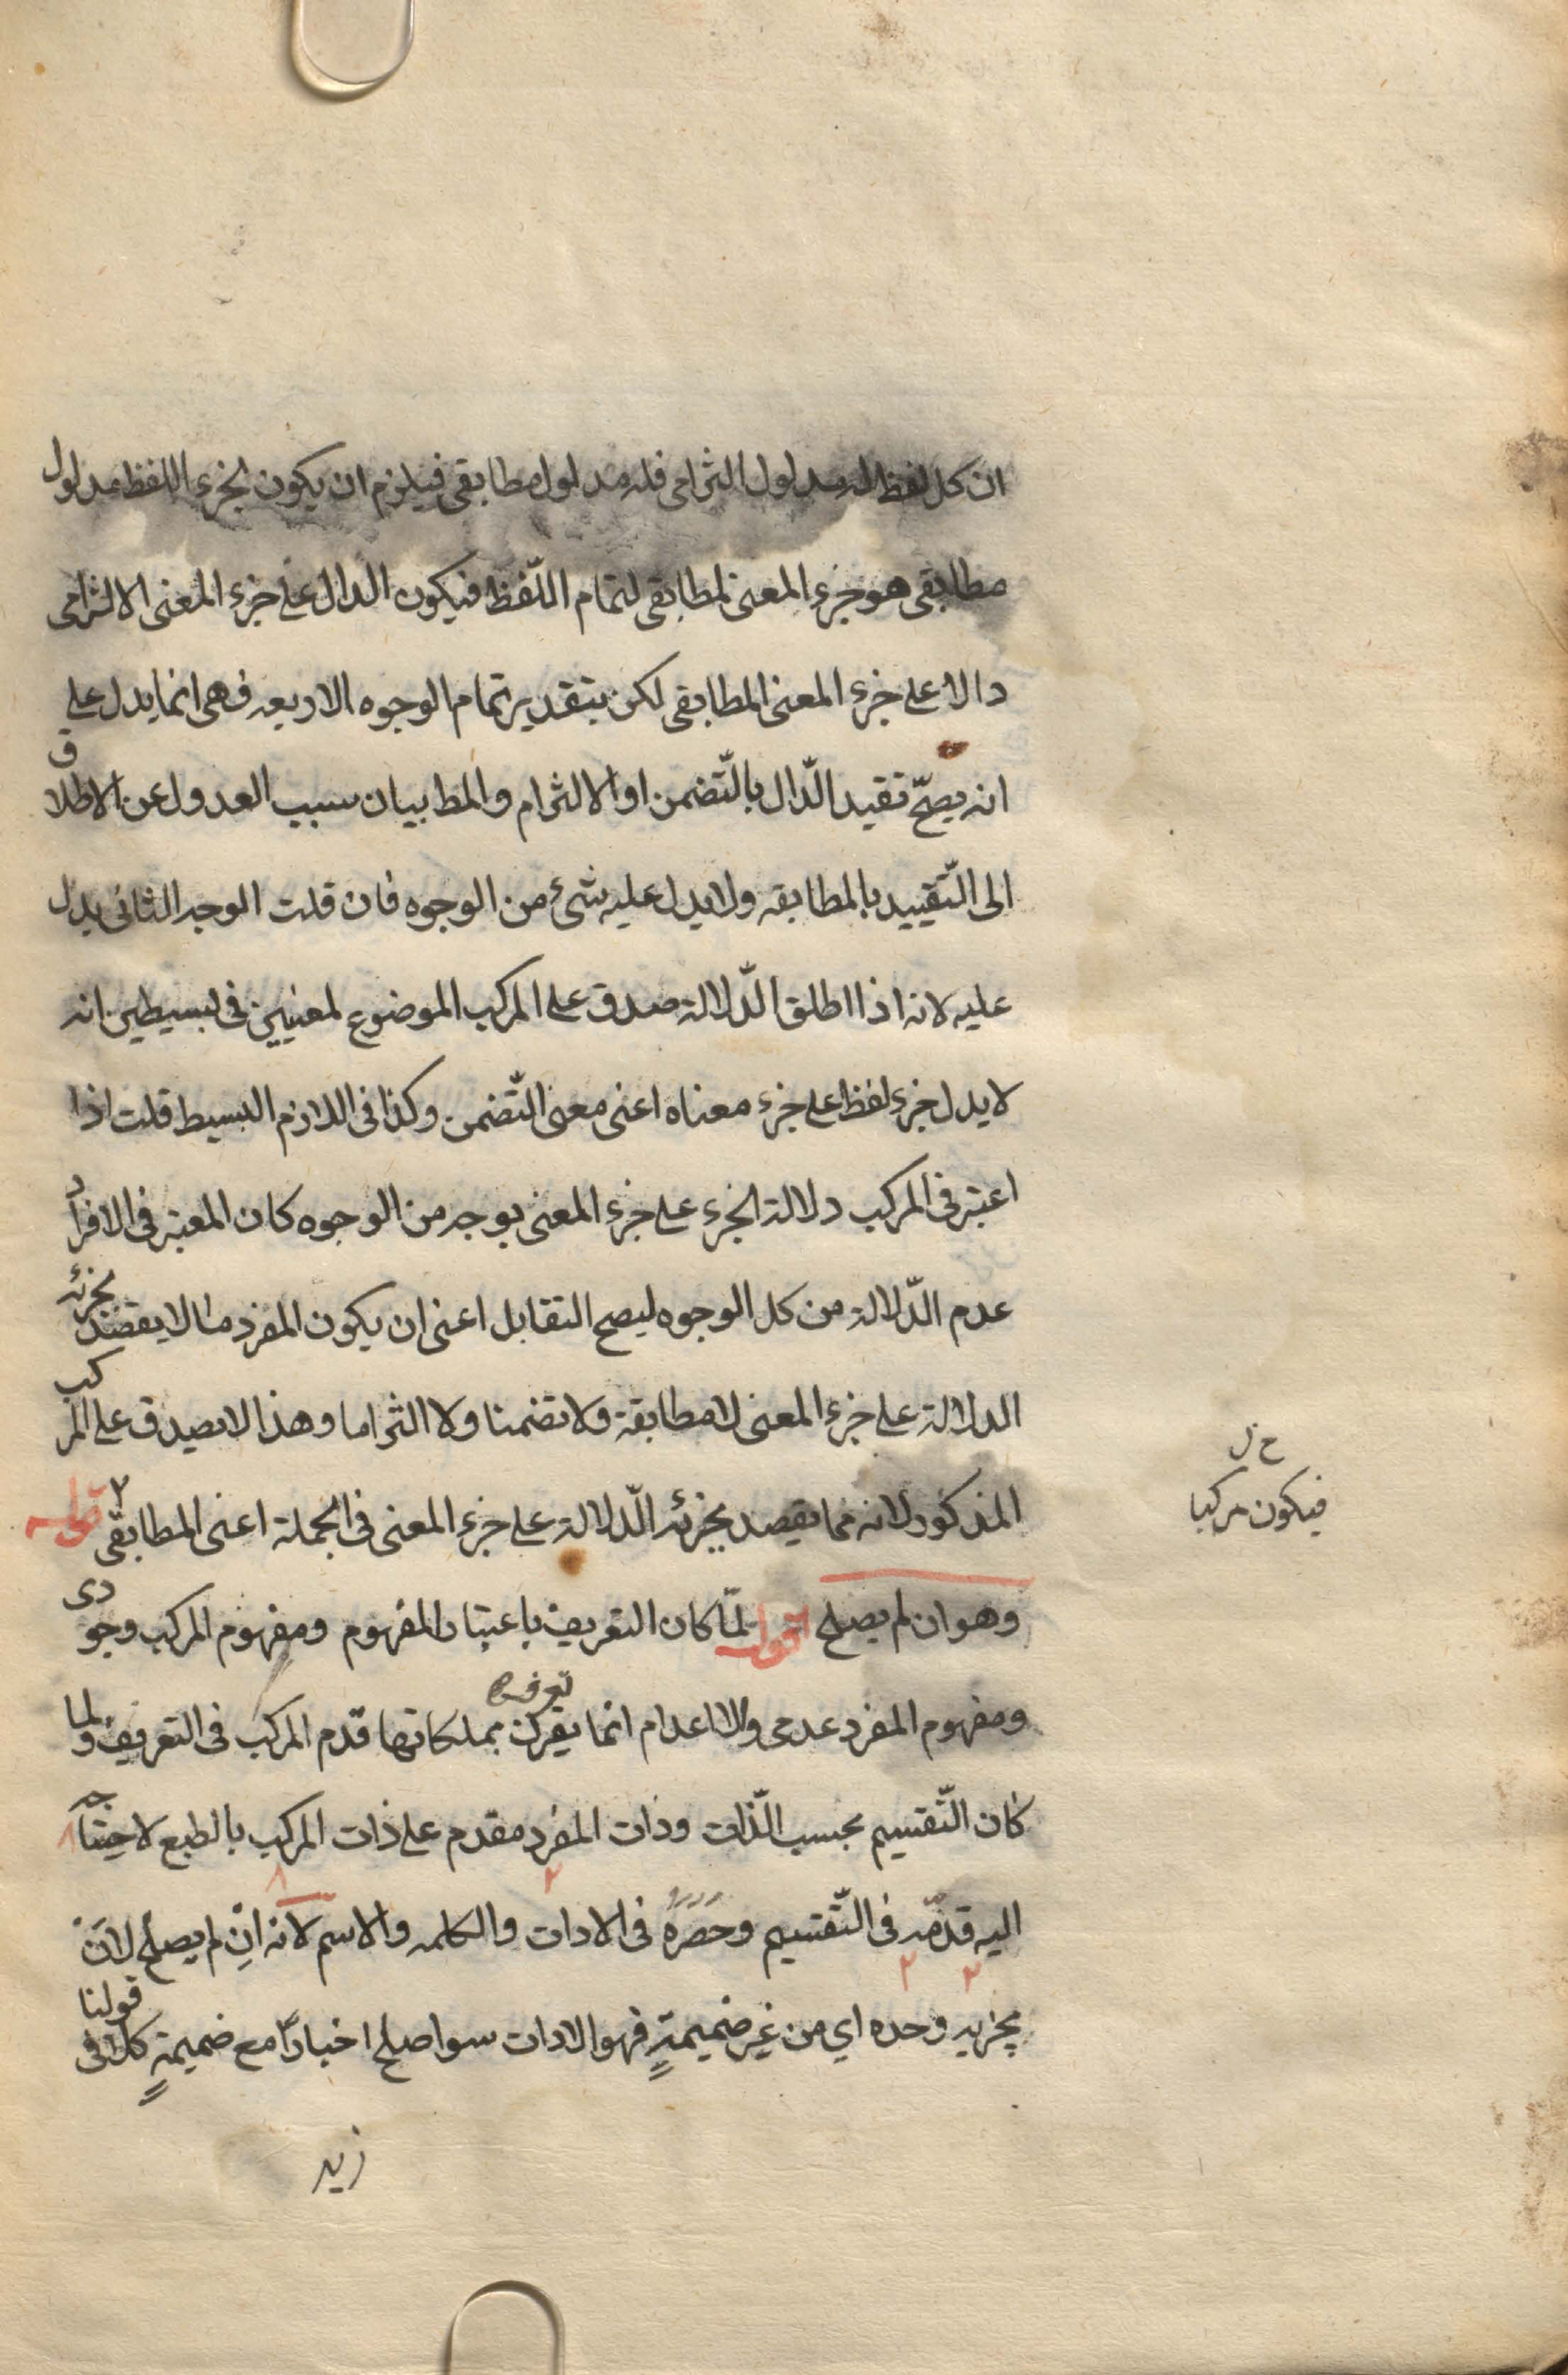 ان كل لفظ له مدلول التزامى فله مدلول مطابقى فيلزم ان يكون لجزء اللفظ مدلول
مطابقى هو جزء المعنى المطابقى لتمام اللّفظ فيكون الدال على جزء المعنى الالتزامى
دالا على جزء المعنى المطابقى لكن بتقدير تمام الوجوه الاربعه فهى انما يدل على
انه يصحّ تقيد الدّال بالتّضمن او الالتزام والمط بيان سبب العدول عن الاطلاق
الى التّقييد بالمطابقه ولا يدل عليه شئ من الوجوه فان قلت الوجه الثانى يدل
عليه لانه اذا اطلق الدّلالة صدق على المركب الموضوع لمعنيين فى بسيطين انه
لا يدل جزء لفظ على جزء معناه اعنى معنى التّضمن وكذا فى اللازم البسيط قلت اذا
اعتبر فى المركب دلالة الجزء على جزء المعنى بوجه من الوجوه كان المعتبر فى الافراد
عدم الدّلالة من كل الوجوه ليصح التقابل اعنى ان يكون المفرد ما لا يقصد بجزئه
الدلالة على جزء المعنى لا مطابقة ولا تضمنا ولا التزاما وهذا لا يصدق على المركب
المذكور لانه مما يقصد بجزئه الدّلالة على جزء المعنى فى الجملة اعنى المطابقى ٢ قوله
خ ل
فيكون مركبا
وهو ان لم يصلح اقول لمّا كان التعريف باعتبار المفهوم ومفهوم المركب وجودى
ومفهوم المفرد عدمى والاعدام انما يعرف بملكاتها قدّم المركب فى التعريف ولما
كان التّقسيم بحسب الذّات وذات المفرد مقدم على ذات المركب بالطبع لاحتياجه
اليه قدّمه فى التّقسيم وحصره فى الادات والكلمه والاسم لانه انِ لم يصلح لان
يخبر به وحده اي من غير ضميمةٍ فهو الادات سوا صلح اخبارًا مع ضميمةٍ كلا فى قولنا
زيد